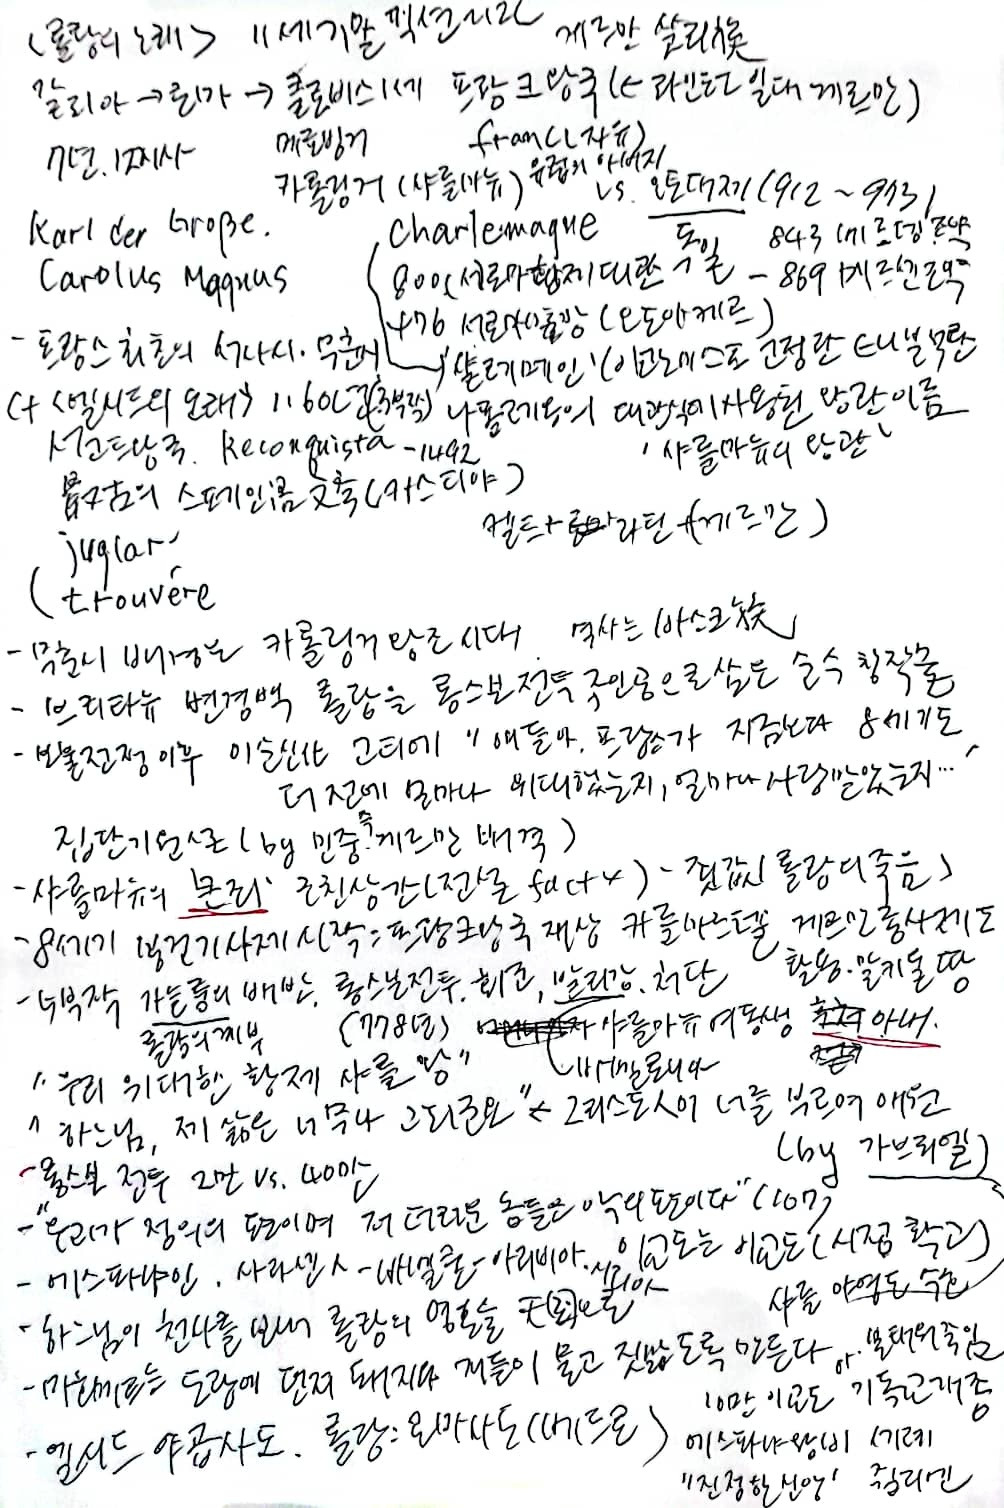 <롤랑의 노래> 11세기말 픽션서사 게르만 살리族
갈리아→로마→클로비스1세 프랑크왕국(←라인란트 일대 게르만)
7년. 12지사 메로빙거 franc(자유)
카롤링거(샤를마뉴) 유럽의 아버지 vs. 오토대제(912~973)
Karl der Große. Charlemagne 독일 843 베르덩조약
Carolus Magnus 800(서로마황제대관 - 869 메르센조약
476 서로마멸망(오도아케르)
- 프랑스 최초의 서사시. 무훈시 '샬레메인'(이코노미스트 고정란 EU블럭란
(+ <엘시드의 노래> 1160년(3부작) 나폴레옹이 대관식에 사용된 왕관이름
서고트왕국. Reconquista -1492 '샤를마뉴의 왕관'
最古의 스페인어 문학(카스티야)
juglar 켈트+라틴+(게르만)
(trouvére
- 무훈시 배경은 카롤링거 왕조 시대. 역사는 바스크族
- 브리타뉴 변경백 롤랑을 롱스보전투 주인공으로 삼은 순수 창작물
- 보불전쟁 이후 고티에 "얘들아, 프랑스가 지금보다 8세기도
더 전에 얼마나 위대했는지, 얼마나 사랑받았는지..."
집단기원설(by 민중. 즉 게르만 배격)
- 샤를마뉴의 '큰죄' 근친상간(전설 fact x) - 죗값(롤랑의 죽음)
- 8세기 봉건기사제 시작: 프랑크왕국 재상 카를마르텔 게르만종사제도
- 4부작 가늘롱의 배반, 롱스보전투, 회군, 발리강, 처단 활용. 말키울 땅
롤랑의 계부 (778년) 샤를마뉴 여동생 아내.
"우리 위대한 황제 샤를 왕"
"하느님, 제 삶은 너무나 고되군요" ← 그리스도인이 너를 부르며 애원
(by 가브리엘)
- 롱스보 전투 2만 vs. 40만
- "우리가 정의의 편이며 저 더러운 놈들은 악의 편이다"(107)
- 에스파냐인. 사라센人-바빌론-아라비아. 이교도는 이교도(시점 확고)
- 하느님이 천사를 보내 롤랑의 영혼을 天國으로
- 마호메트는 도랑에 던져 돼지와 개들이 물고 짓밟도록 만든다
10만 이교도 기독교개종
- 엘시드 야곱사도. 롤랑: 로마사도(베드로) 에스파냐왕비 세례
"진정한 신앙" 쥘리엔